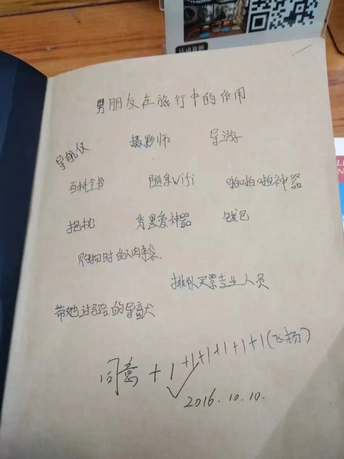 男朋友在旅行中的作用
导航仪 摄影师 导游
百科全书 随身wifi 啪啪啪神器
拖机 秀恩爱神器 钱包
购物时的人肉手袋
排队买票专业人员
带她过马路的导盲犬
同意+1+1+1+1+1+1(飞扬)
2016.10.10.